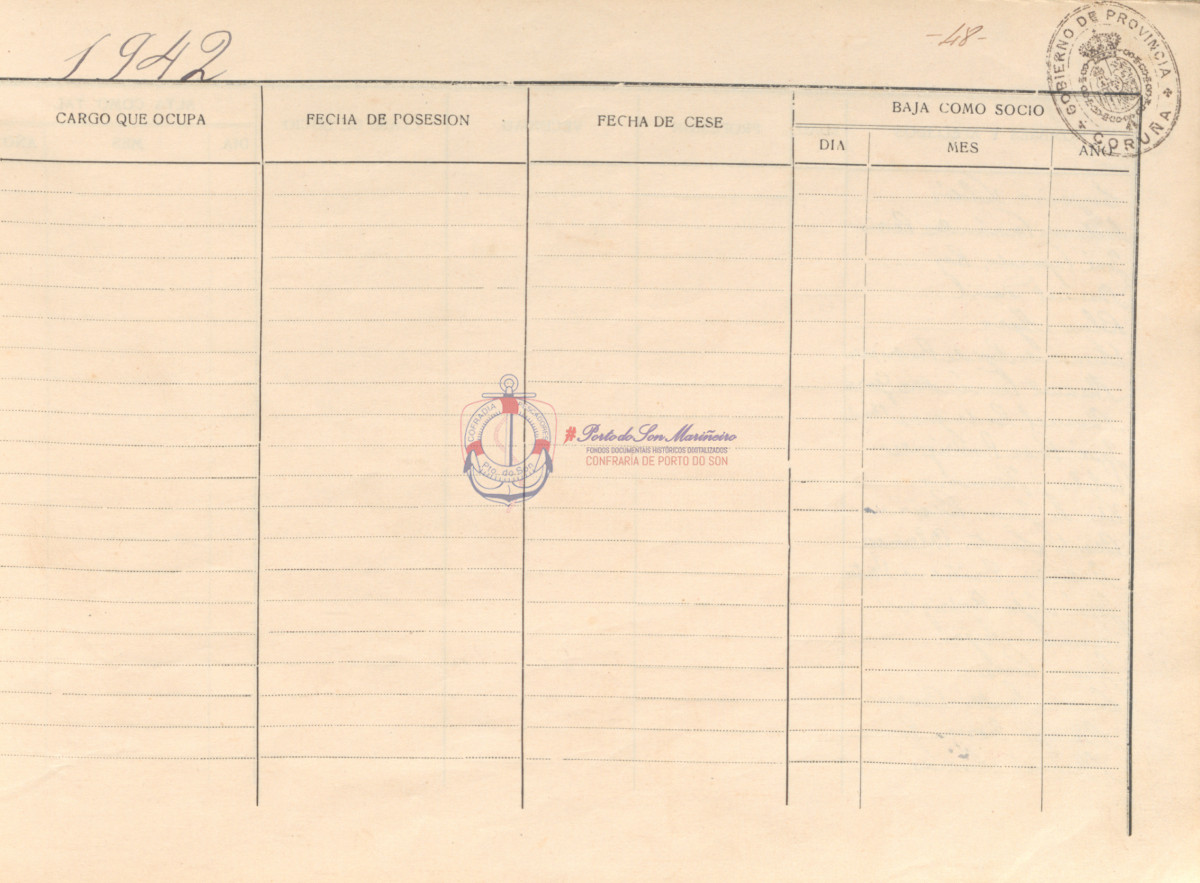 1942
-48-
GOBIERNO DE PROVINCIA
CORUÑA
CARGO QUE OCUPA
FECHA DE POSESION
FECHA DE CESE
BAJA COMO SOCIO
DIA
MES
AÑO
COFRADIA
Pto. do Son
#Porto do Son Mariñeiro
FONDOS DOCUMENTAIS HISTÓRICOS DIXITALIZADOS
CONFRARÍA DE PORTO DO SON